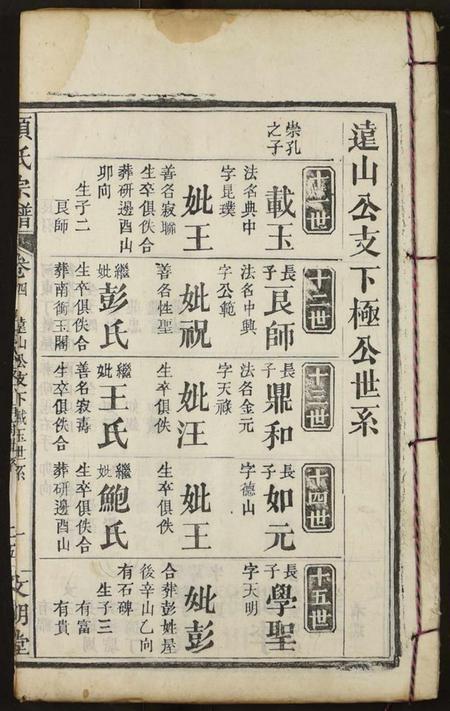 遠山公支下極公世系
十一世
崇孔之子
載玉
法名典中
字昆璞
妣王
善名寂聯
生卒俱佚合
葬研邊酉山
卯向
生子二
艮師
十二世
長子
艮師
法名中興
字公範
妣祝
善名性聖
繼妣
彭氏
生卒俱佚合
葬南衝玉閣
十三世
長子
鼎和
法名金元
字天祿
妣汪
生卒俱佚
繼妣
王氏
善名寂壽
生卒俱佚合
十四世
長子
如元
字德山
妣王
生卒俱佚
繼妣
鮑氏
生卒俱佚合
葬研邊酉山
十五世
長子
學聖
字天明
妣彭
合葬彭姓屋
後辛山乙向
有石碑
生子三
有富
有貴
項氏宗譜
卷四
遠山公支下載玉世系
文明堂